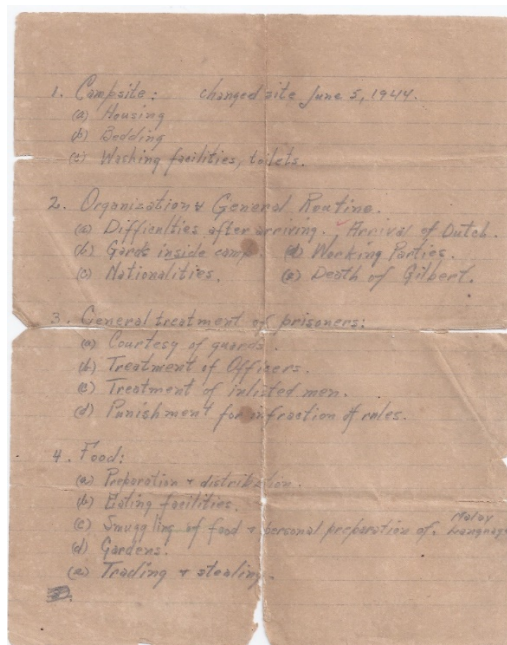 1. Campsite: changed site June 5, 1944.
(a) Housing
(b) Bedding
(c) Washing facilities, toilets.
2. Organization & General Routine.
(a) Difficulties after arriving. Arrival of Dutch.
(b) Gards inside camp (d) Working Parties.
(c) Nationalities. (e) Death of Gilbert.
3. General treatment of prisoners:
(a) Courtesy of guards
(b) Treatment of Officers.
(c) Treatment of inlisted men.
(d) Punishment for infraction of rules.
4. Food:
(a) Preparation & distribution.
(b) Eating facilities.
(c) Smuggling of food & personal preparation of. Malay Language
(d) Gardens.
(e) Trading & stealing.